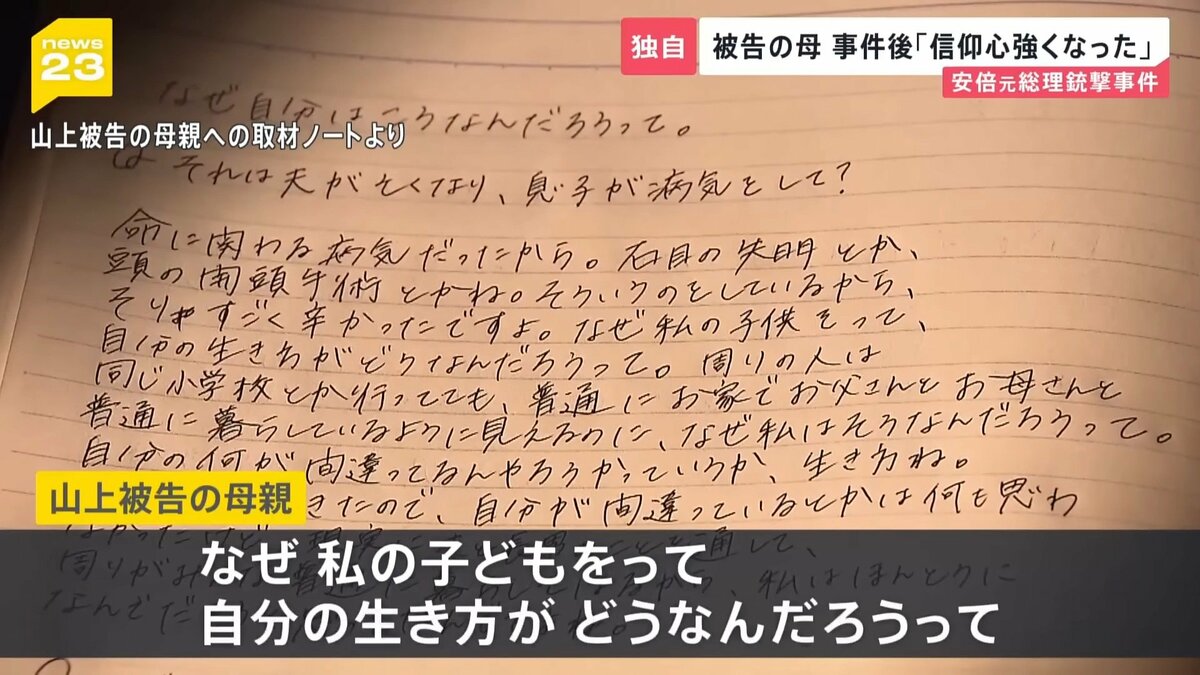 news
23
独自
被告の母 事件後「信仰心強くなった」
安倍元総理銃撃事件
山上被告の母親への取材ノートより
なぜ自分はこうなんだろうって。
それは夫が亡くなり、息子が病気をして?
命に関わる病気だったから。右目の失明とか、
頭の開頭手術とかね。そういうのをしているから、
そりゃすごく辛かったですよ。なぜ私の子供をって、
自分の生き方がどうなんだろうって。周りの人は
同じ小学校とか行ってても、普通にお家でお父さんとお母さんと
普通に暮らしているように見えるのに、なぜ私はそうなんだろうって。
自分の何が間違ってるんやろうかっていうか、生き方ね。
きたので、自分が間違っているとかは何も思わ
山上被告の母親
なぜ 私の子どもをって
自分の生き方が どうなんだろうって